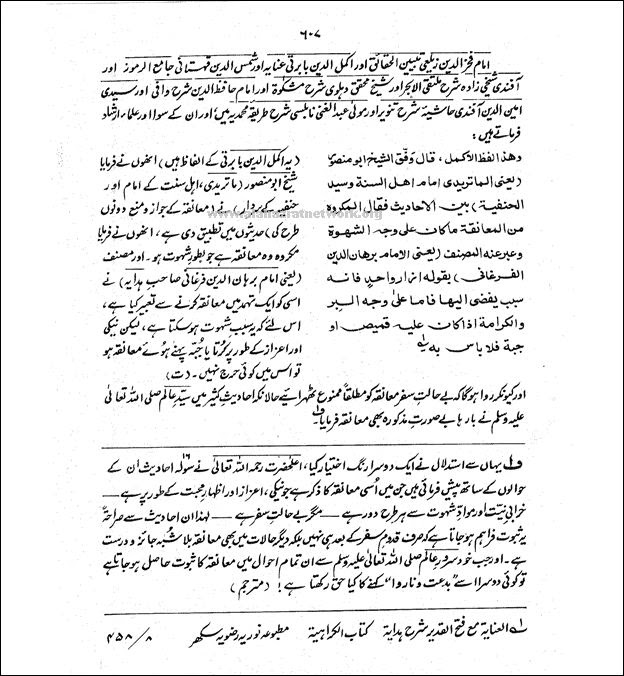 ٦٠٧
امام فخر الدین زیلعی تبیین الحقائق اور اکمل الدین بابرتی عنایہ اور شمس الدین قہستانی جامع الرموز اور
آفندی شیخی زادہ شرح ملتقی الابحر اور شیخ محقق دہلوی شرح مشکوٰۃ اور امام حافظ الدین شرح وافی اور سیدی
امین الدین آفندی حاشیۂ شرح تنویر اور مولی عبدالغنی نابلسی شرح طریقہ محمدیہ میں اور ان کے سوا اور علماء ارشاد
فرماتے ہیں :
وهذا لفظ الاكمل، قال وَفَّق الشيخ ابو منصور
(يعنى الماتريدى امام اهل السنة وسيد
الحنفية) بين الاحاديث فقال المكروه
من المعانقة ماكان على وجه الشهوة
وعبر عنه المصنف (يعنى الامام برهان الدين
الفرغانى) بقوله ازار واحد فانه
سبب يفضى اليها فاما على وجه البر
والكرامة اذا كان عليه قميص او
جبة فلا باس به ۱
(یہ اکمل الدین بابرتی کے الفاظ ہیں) انھوں نے فرمایا
شیخ ابو منصور (ماتریدی، اہل سنت کے امام اور
حنفیہ کے سردار) نے (معانقہ کے جواز و منع دونوں
طرح کی) حدیثوں میں تطبیق دی ہے، انھوں نے فرمایا
مکروہ وہ معانقہ ہے جو بطور شہوت ہو۔ اور مصنف
(یعنی امام برہان الدین فرغانی صاحبِ ہدایہ) نے
اسی کو ایک تہمد میں معانقہ کرنے سے تعبیر کیا ہے،
اس لئے کہ یہ سببِ شہوت ہوسکتا ہے، لیکن نیکی
اور اعزاز کے طور پر کُرتا یا جُبّہ پہنے ہوئے معانقہ ہو
تو اس میں کوئی حرج نہیں۔ (ت)
اور کیونکر روا ہوگا کہ بے حالتِ سفر معانقہ کو مطلقاً ممنوع ٹھہرائیے حالانکہ احادیثِ کثیر میں سیّدِ عالم صلی اللہ تعالیٰ
علیہ وسلم نے بارہا بے صورتِ مذکورہ بھی معانقہ فرمایا ف۱
ف۱ یہاں سے استدلال نے ایک دوسرا رنگ اختیار کیا، اعلٰحضرت رحمہ اللہ تعالیٰ نے سولہ ۱۶ احادیث اُن کے
حوالوں کے ساتھ پیش فرمائی ہیں جن میں اُسی معانقہ کا ذکر ہے جو نیکی، اعزاز اور اظہارِ محبت کے طور پر ہے —
خرابیِ نیت اور موادِ شہوت سے ہر طرح دور ہے — مگر بے حالتِ سفر ہے — لہذا ان احادیث سے صراحۃً
یہ ثبوت فراہم ہوجاتا ہے کہ صرف قدومِ سفر کے بعد ہی نہیں بلکہ دیگر حالات میں بھی معانقہ بلا شُبہ جائز و درست
ہے۔ اور جب خود سرورِ عالم صلی اللہ تعالیٰ علیہ وسلم سے ان تمام احوال میں معانقہ کا ثبوت حاصل ہو جاتا ہے
تو کوئی دوسرا اسے "بدعت و ناروا" کہنے کا کیا حق رکھتا ہے! (مترجم)
۱ العنایة مع فتح القدیر شرح ہدایة کتاب الکراهیة مطبوعہ نوریہ رضویہ سکھر ۸/۴۵۸